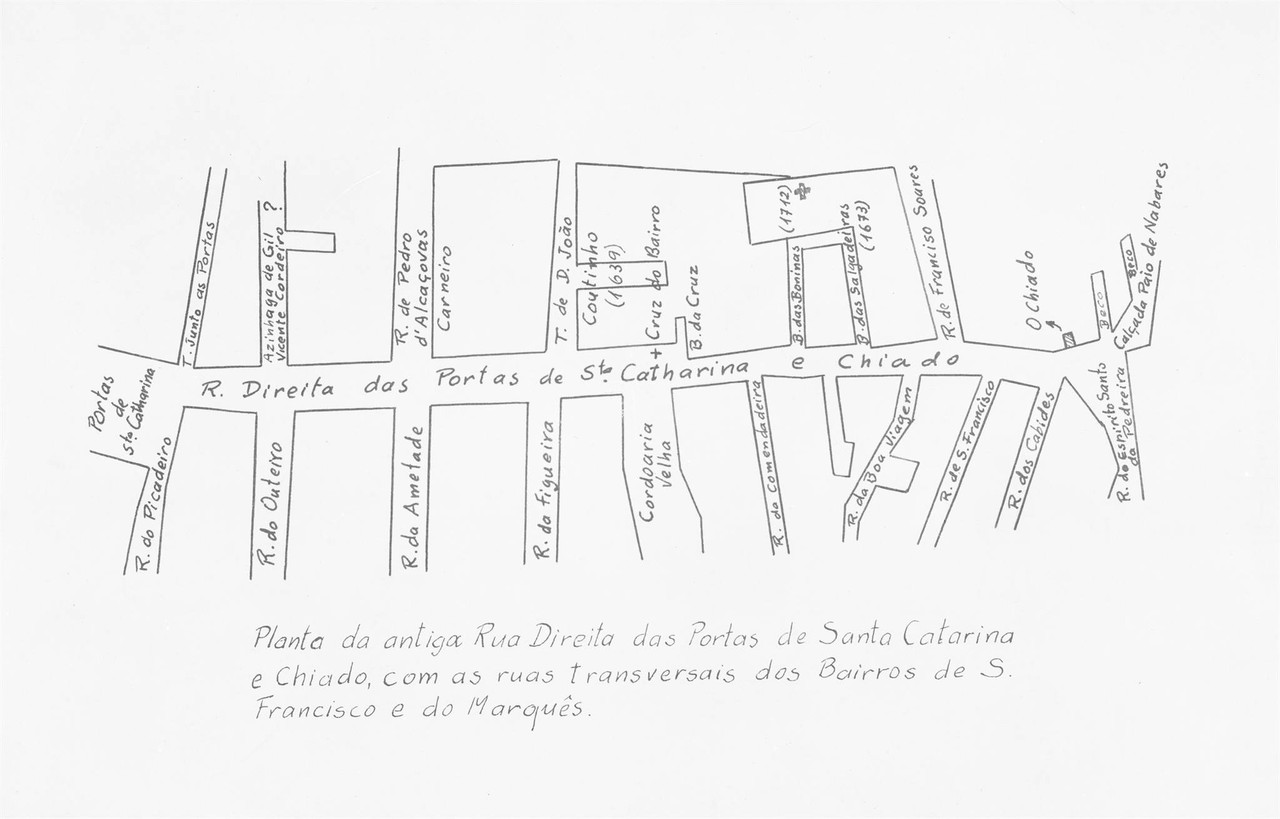 T. Junto as Portas
Azinhaga de Gil
Vicente Cordeiro ?
R. de Pedro
d'Alcaçovas
Carneiro
T. de D. João
Coutinho
(1639)
+ Cruz do Bairro
B. da Cruz
(1712)
B. das Boninas
B. das Salgadeiras
(1673)
R. de Franciso Soares
O Chiado
Beco
Beco
Calçada Paio de Nabares
Portas
de
Sta Catharina
R. Direita das Portas de Sta. Catharina e Chiado
R. do Picadeiro
R. do Outeiro
R. da Ametade
R. da Figueira
Cordoaria
Velha
R. da Comendadeira
R. da Boa Viagem
R. de S. Francisco
R. dos Cabides
R. do Espirito Santo
da Pedreira
Planta da antiga Rua Direita das Portas de Santa Catarina
e Chiado, com as ruas transversais dos Bairros de S.
Francisco e do Marquês.